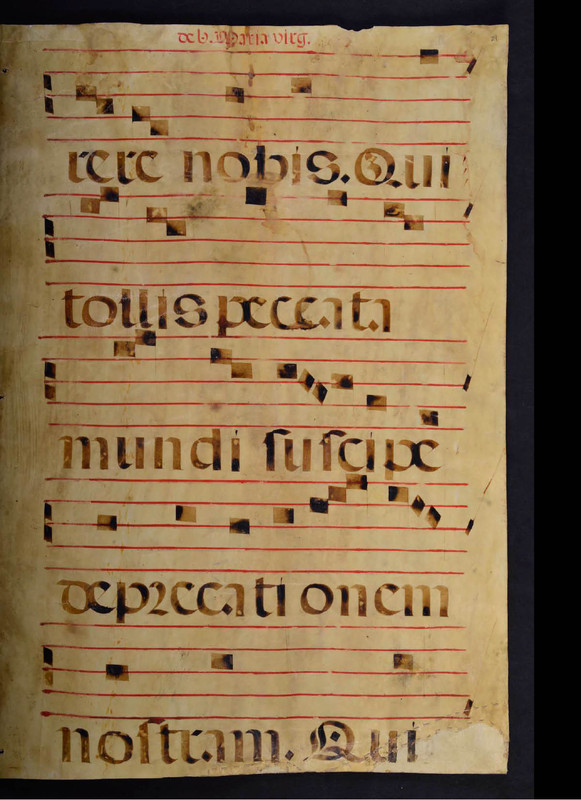 de b. Maria virg.
rere nobis. Qui
tollis peccata
mundi suscipe
deprecationem
nostram. Qui